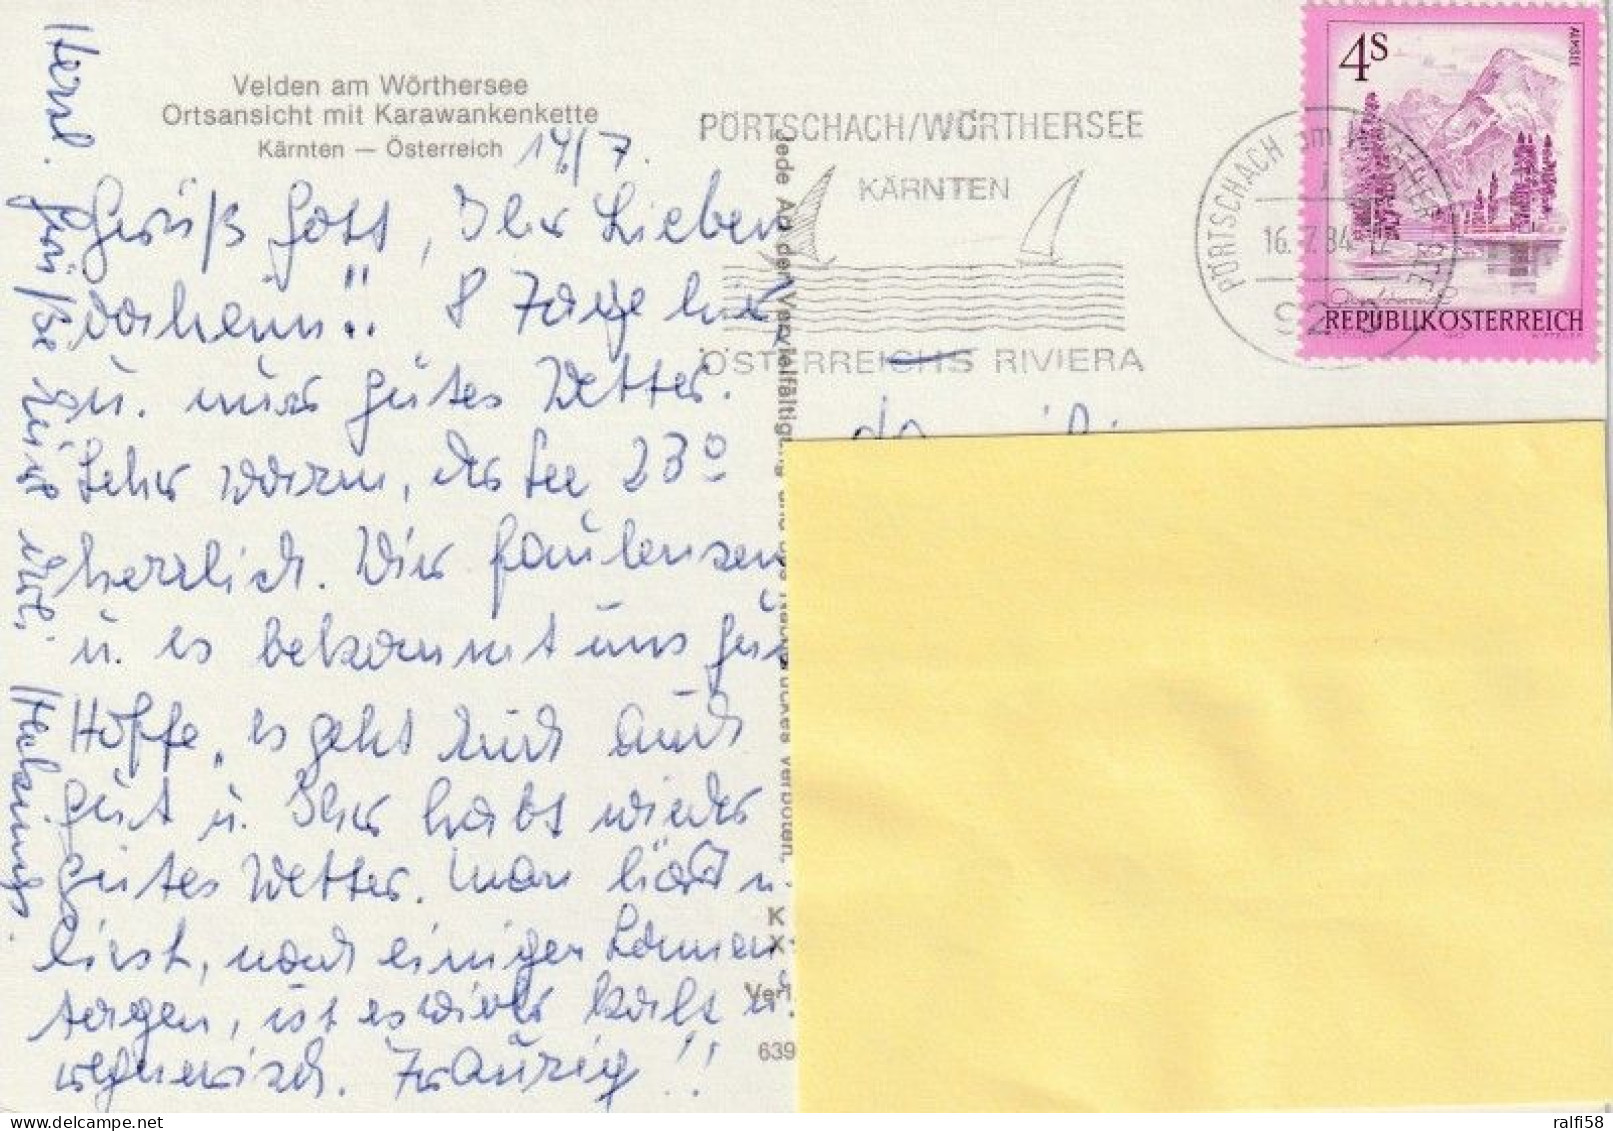 Velden am Wörthersee
Ortsansicht mit Karawankenkette
Kärnten — Österreich
14/7.
Grüß Gott, Ihr Lieben
daheim!! 8 Tage hier
u. nur gutes Wetter.
Sehr warm, der See 23°
herrlich. Wir faulenzen
u. es bekommt uns gut
Hoffe, es geht Euch auch
gut u. Ihr habt wieder
gutes Wetter. Man hört u.
liest, nach einigen Sommer
tagen, ist es wieder kalt u.
regnerisch. Traurig!!
Herzl. Grüße Eure
PÖRTSCHACH/WÖRTHERSEE
KÄRNTEN
ÖSTERREICHS RIVIERA
PÖRTSCHACH am WÖRTHER SEE
16. 7. 84
4S
ALMSEE
REPUBLIK ÖSTERREICH
Jede Art der Vervielfältigung und des Nachdruckes verboten.
K
X
Verl
639
ralfi58